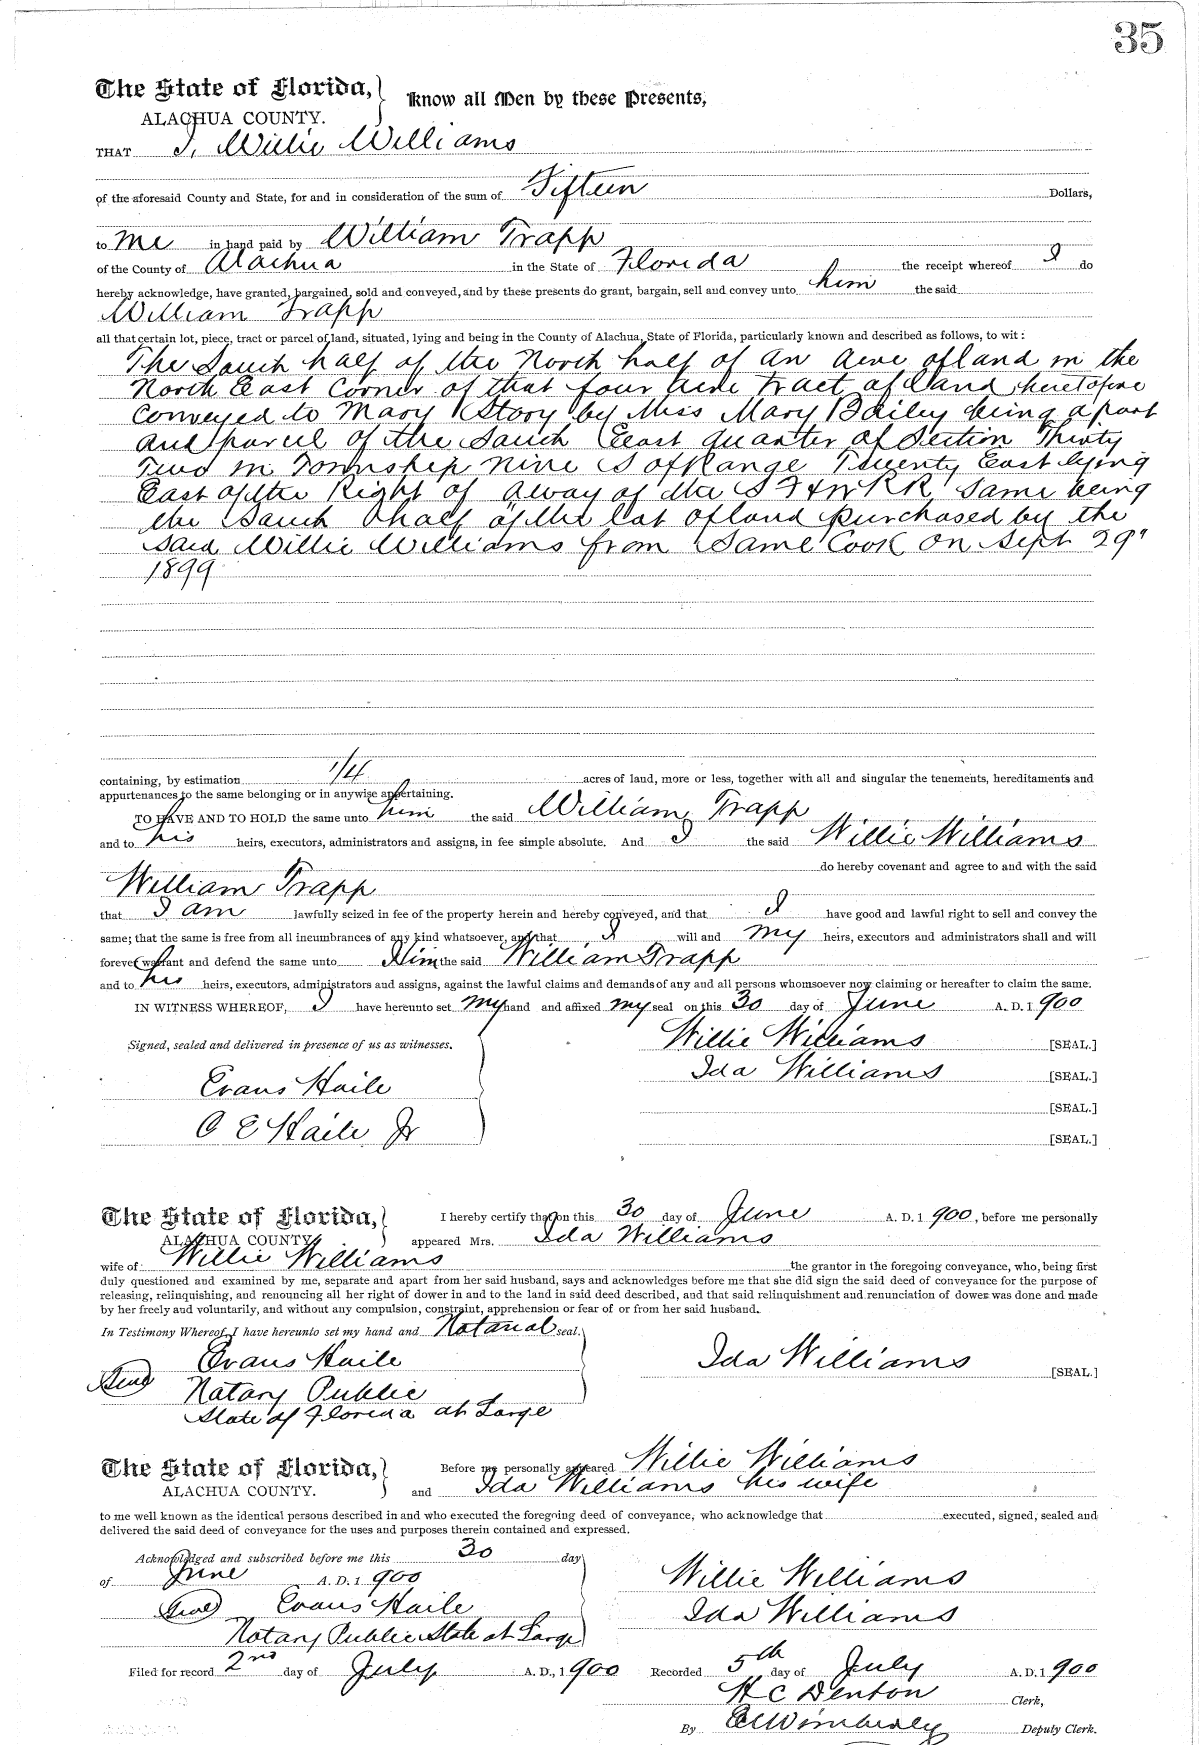 35
The State of Florida, Know all Men by these Presents,
ALACHUA COUNTY.
THAT I, Willie Williams
of the aforesaid County and State, for and in consideration of the sum of Fifteen Dollars,
to me in hand paid by William Trapp
of the County of Alachua in the State of Florida the receipt whereof I do
hereby acknowledge, have granted, bargained, sold and conveyed, and by these presents do grant, bargain, sell and convey unto him the said
William Trapp
all that certain lot, piece, tract or parcel of land, situated, lying and being in the County of Alachua, State of Florida, particularly known and described as follows, to wit:
The South half of the North half of an acre of land in the
North East Corner of that four acre tract of land heretofore
conveyed to Mary Story by Miss Mary Bailey being a part
and parcel of the South East quarter of Section Thirty
Two in Township nine S of Range Twenty East lying
East of the Right of away of the S F & W R R, Same being
the South half of the lot of land purchased by the
said Willie Williams from Same Cook on Sept 29"
1899
containing, by estimation 1/4 acres of land, more or less, together with all and singular the tenements, hereditaments and
appurtenances to the same belonging or in anywise appertaining.
TO HAVE AND TO HOLD the same unto him the said William Trapp
and to his heirs, executors, administrators and assigns, in fee simple absolute. And I the said Willie Williams
do hereby covenant and agree to and with the said
William Trapp
that I am lawfully seized in fee of the property herein and hereby conveyed, and that I have good and lawful right to sell and convey the
same; that the same is free from all incumbrances of any kind whatsoever, and that I will and my heirs, executors and administrators shall and will
forever warrant and defend the same unto Him the said William Trapp
and to his heirs, executors, administrators and assigns, against the lawful claims and demands of any and all persons whomsoever now claiming or hereafter to claim the same.
IN WITNESS WHEREOF, I have hereunto set my hand and affixed my seal on this 30 day of June A. D. 1 900
Willie Williams [SEAL.]
Signed, sealed and delivered in presence of us as witnesses.
Ida Williams [SEAL.]
Evans Haile
[SEAL.]
C E Haile Jr
[SEAL.]
The State of Florida, I hereby certify that on this 30 day of June A. D. 1 900, before me personally
ALACHUA COUNTY. appeared Mrs. Ida Williams
wife of Willie Williams the grantor in the foregoing conveyance, who, being first
duly questioned and examined by me, separate and apart from her said husband, says and acknowledges before me that she did sign the said deed of conveyance for the purpose of
releasing, relinquishing, and renouncing all her right of dower in and to the land in said deed described, and that said relinquishment and renunciation of dower was done and made
by her freely and voluntarily, and without any compulsion, constraint, apprehension or fear of or from her said husband.
In Testimony Whereof, I have hereunto set my hand and Notarial seal.
Evans Haile Ida Williams [SEAL.]
Seal Notary Public
State of Florida at Large
The State of Florida, Before me personally appeared Willie Williams
ALACHUA COUNTY. and Ida Williams his wife
to me well known as the identical persons described in and who executed the foregoing deed of conveyance, who acknowledge that executed, signed, sealed and
delivered the said deed of conveyance for the uses and purposes therein contained and expressed.
Acknowledged and subscribed before me this 30 day
of June A. D. 1 900 Willie Williams
Seal Evans Haile Ida Williams
Notary Public State at Large
Filed for record 2nd day of July A. D., 1 900 Recorded 5th day of July A. D. 1 900
H C Denton Clerk,
By Wimberly Deputy Clerk.